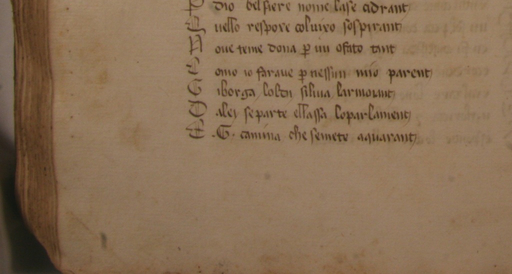 dio bel siere nome lase adrant
uello respose col uiro sospirant
oue teme dona ꝑ un ofito tant
omo io faraue ꝑ nessun mio parent
iborga loldi silua larmount
alei separte ellassa loparlament
E .G. camina che semete aquarant